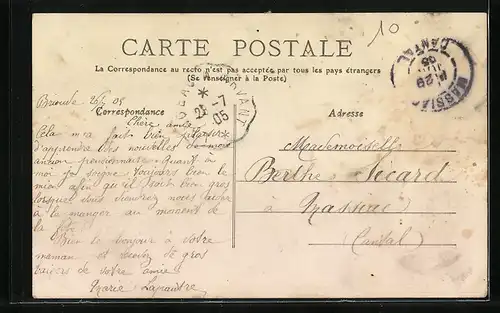 10
CARTE POSTALE
La Correspondance au recto n'est pas acceptée par tous les pays étrangers
(Se renseigner à la Poste)
MASSIAC
CANTAL
25-7
05
Correspondance
Adresse
Brioude 25/7 05
Chère amie
Cela m'a fait bien plaisir
d'apprendre des nouvelles de mon
ancien pensionnaire. Quant à
moi je soigne toujours bien le
mien afin qu'il soit bien gros
lorsque vous viendrez nous aider
à le manger au moment de
la fête
Bien le bonjour à votre
maman, et recevez de gros
baisers de votre amie
Marie
Mademoiselle
Berthe Sicard
à Massiac
Cantal